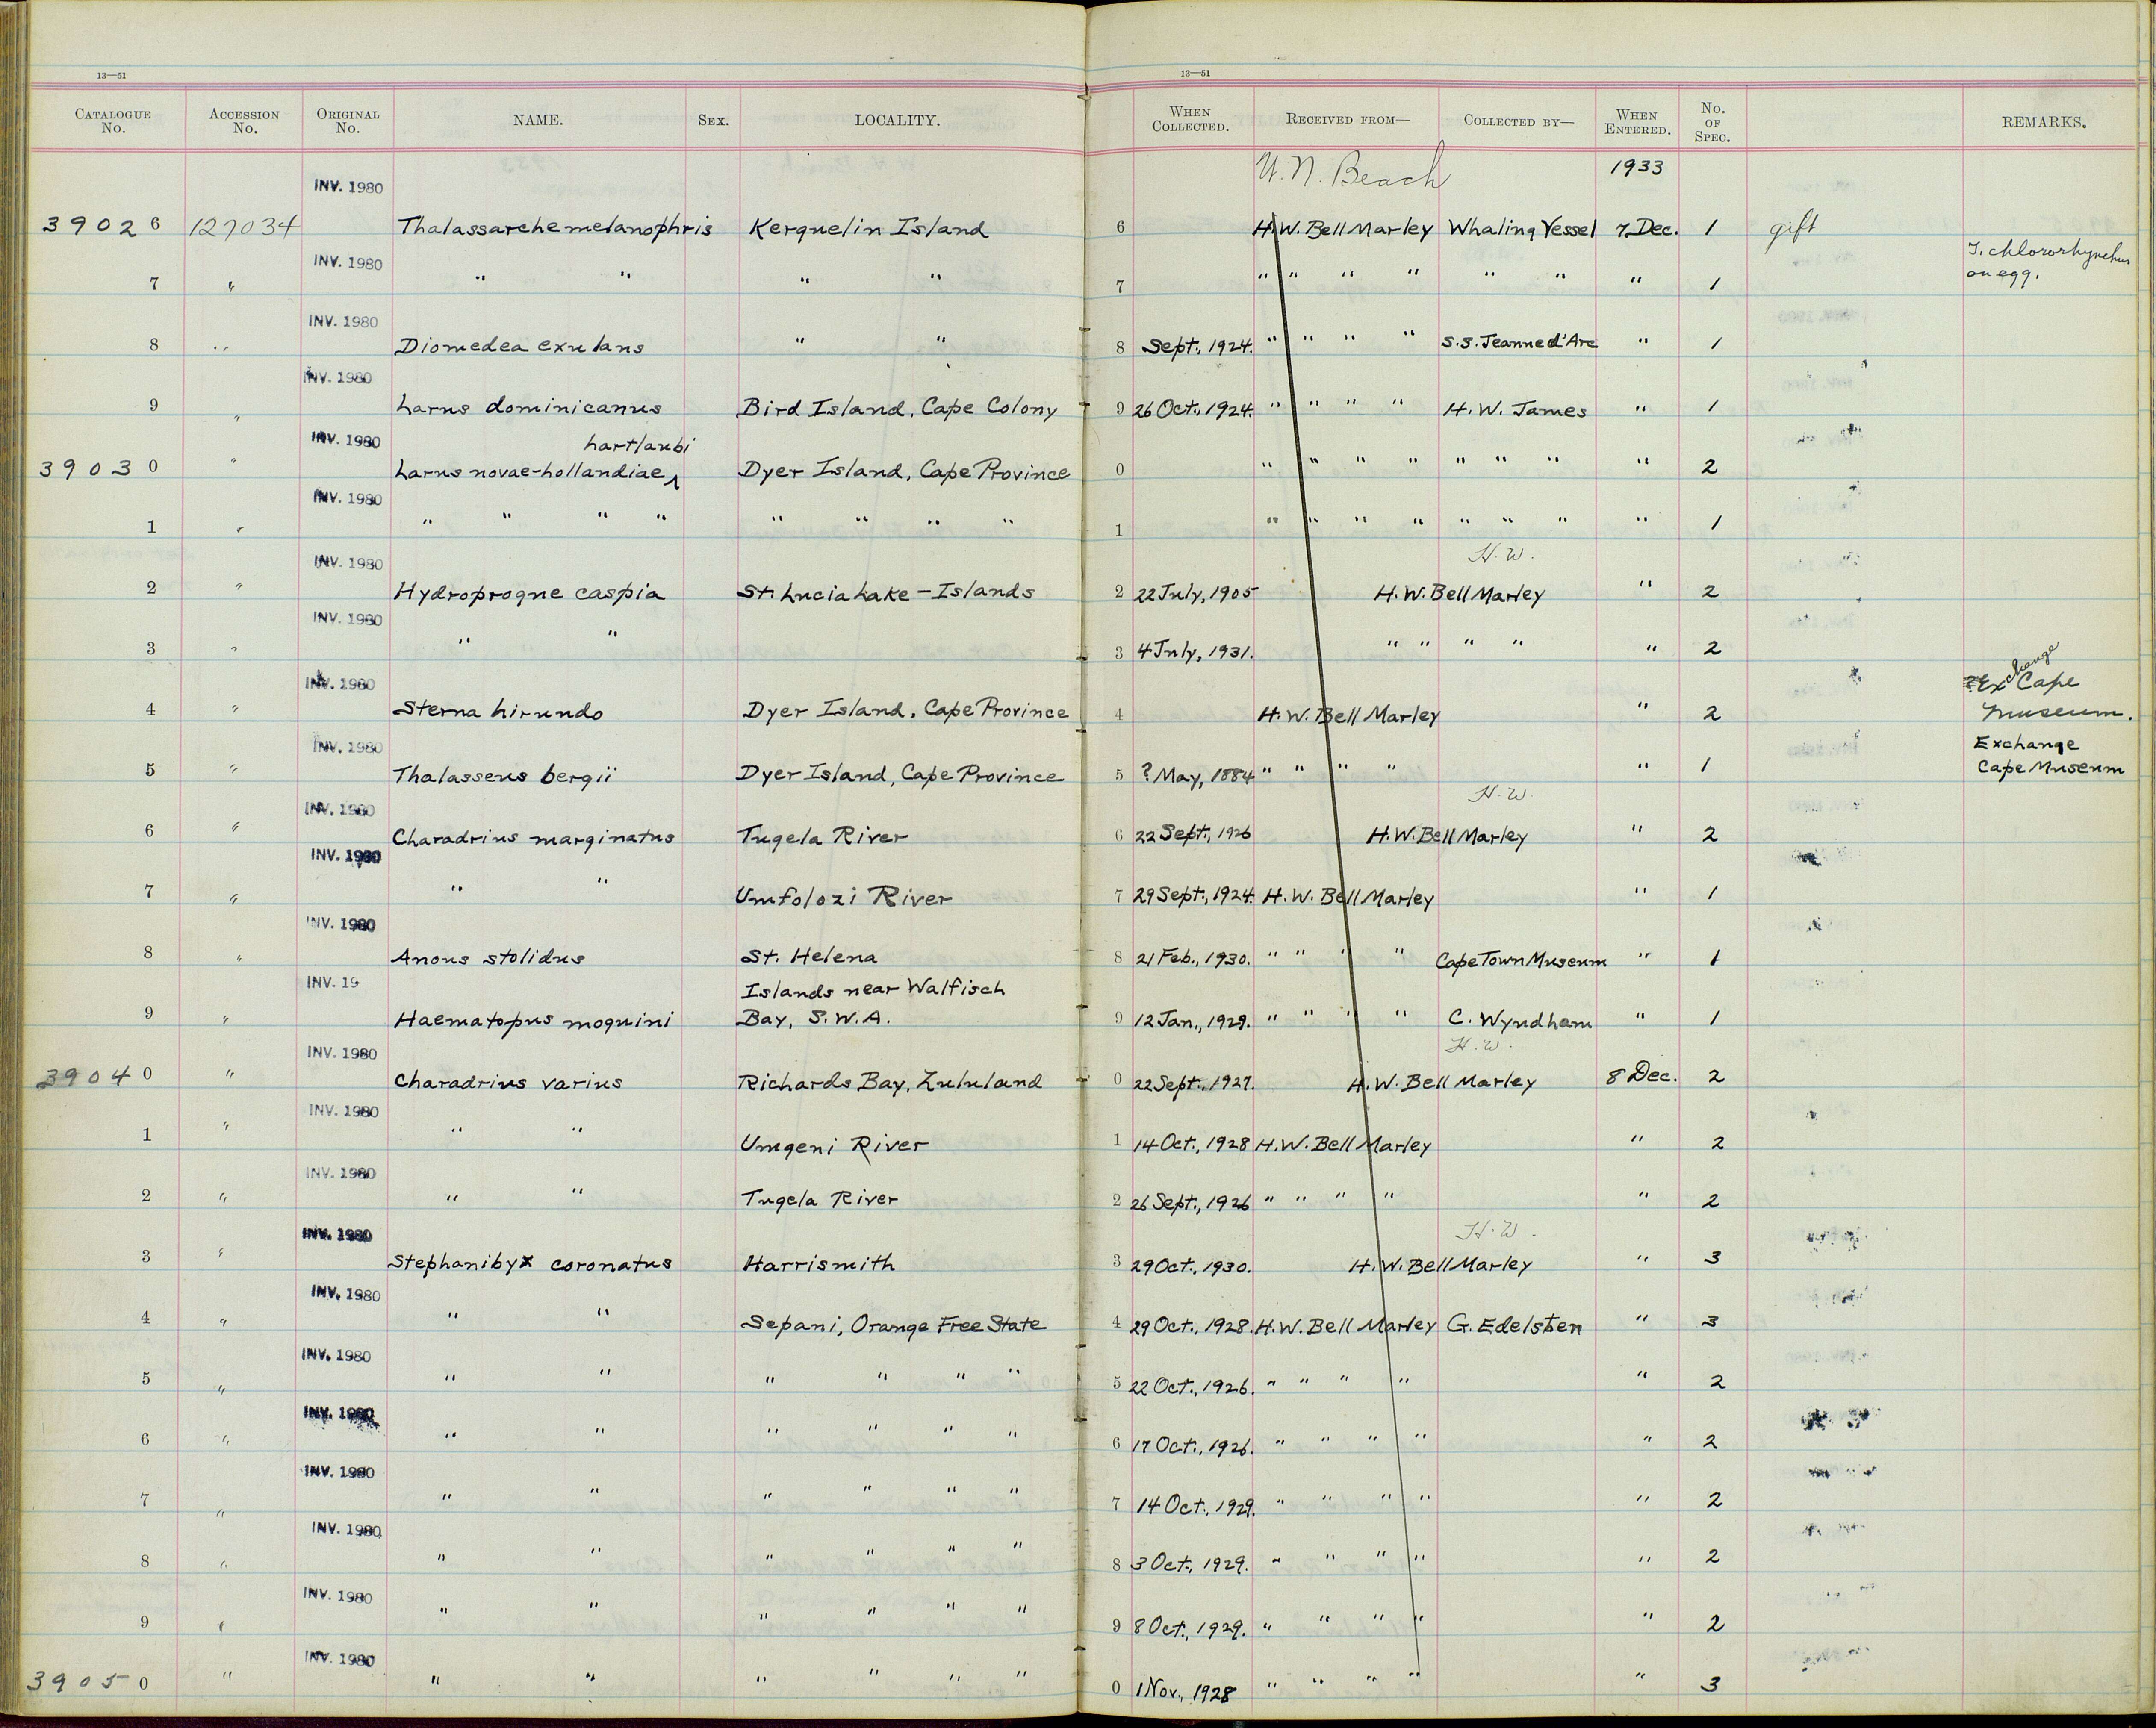 13—51
CATALOGUE No. ACCESSION No. ORIGINAL No. NAME. SEX. LOCALITY.
INV. 1980
39026 127034 Thalassarche melanophris Kerguelin Island
INV. 1980
7 " " " " "
INV. 1980
8 " Diomedea exulans " "
INV. 1980
9 " Larus dominicanus Bird Island, Cape Colony
INV. 1980 hartlaubi
39030 " Larus novae-hollandiae ^ Dyer Island, Cape Province
INV. 1980
1 " " " " " " " " "
INV. 1980
2 " Hydroprogne caspia St. Lucia Lake – Islands
INV. 1980
3 " " "
INV. 1980
4 " Sterna hirundo Dyer Island, Cape Province
INV. 1980
5 " Thalasseus bergii Dyer Island, Cape Province
INV. 1980
6 " Charadrius marginatus Tugela River
INV. 1980
7 " " " Umfolozi River
INV. 1980
8 " Anous stolidus St. Helena
INV. 19 Islands near Walfisch
9 " Haematopus moquini Bay, S.W.A.
INV. 1980
39040 " Charadrius varius Richards Bay, Zululand
INV. 1980
1 " " " Umgeni River
INV. 1980
2 " " " Tugela River
INV. 1980
3 " Stephanibyx coronatus Harrismith
INV. 1980
4 " " " Sepani, Orange Free State
INV. 1980
5 " " " " " " "
INV. 1980
6 " " " " " " "
INV. 1980
7 " " " " " " "
INV. 1980
8 " " " " " " "
INV. 1980
9 " " " " " " "
INV. 1980
39050 " " " " " " "
13—51
WHEN COLLECTED. RECEIVED FROM— COLLECTED BY— WHEN ENTERED. No. OF SPEC. REMARKS.
W. N. Beach 1933
6 H.W. Bell Marley Whaling Vessel 7 Dec. 1 gift
T. chlororhynchus
on egg.
7 " " " " " " " 1
8 Sept., 1924. " " " " S.S. Jeanne d'Arc " 1
9 26 Oct., 1924. " " " " H. W. James " 1
0 " " " " " " " " 2
1 " " " " " " " " 1
H. W.
2 22 July, 1905 H. W. Bell Marley " 2
3 4 July, 1931. " " " " " 2
Exchange Cape
4 H. W. Bell Marley " 2 Museum.
Exchange
5 ? May, 1884 " " " " " 1 Cape Museum
H. W.
6 22 Sept., 1926 H. W. Bell Marley " 2
7 29 Sept., 1924. H. W. Bell Marley " 1
8 21 Feb., 1930. " " " " Cape Town Museum " 1
9 12 Jan., 1929. " " " " C. Wyndham " 1
H. W.
0 22 Sept., 1927. H. W. Bell Marley 8 Dec. 2
1 14 Oct., 1928 H. W. Bell Marley " 2
2 26 Sept., 1926 " " " " " 2
H. W.
3 29 Oct., 1930. H. W. Bell Marley " 3
4 29 Oct., 1928. H. W. Bell Marley G. Edelsten " 3
5 22 Oct., 1926. " " " " " 2
6 17 Oct., 1926. " " " " " 2
7 14 Oct., 1929. " " " " " 2
8 3 Oct., 1929. " " " " " 2
9 8 Oct., 1929. " " " " " 2
0 1 Nov., 1928 " " " " " 3